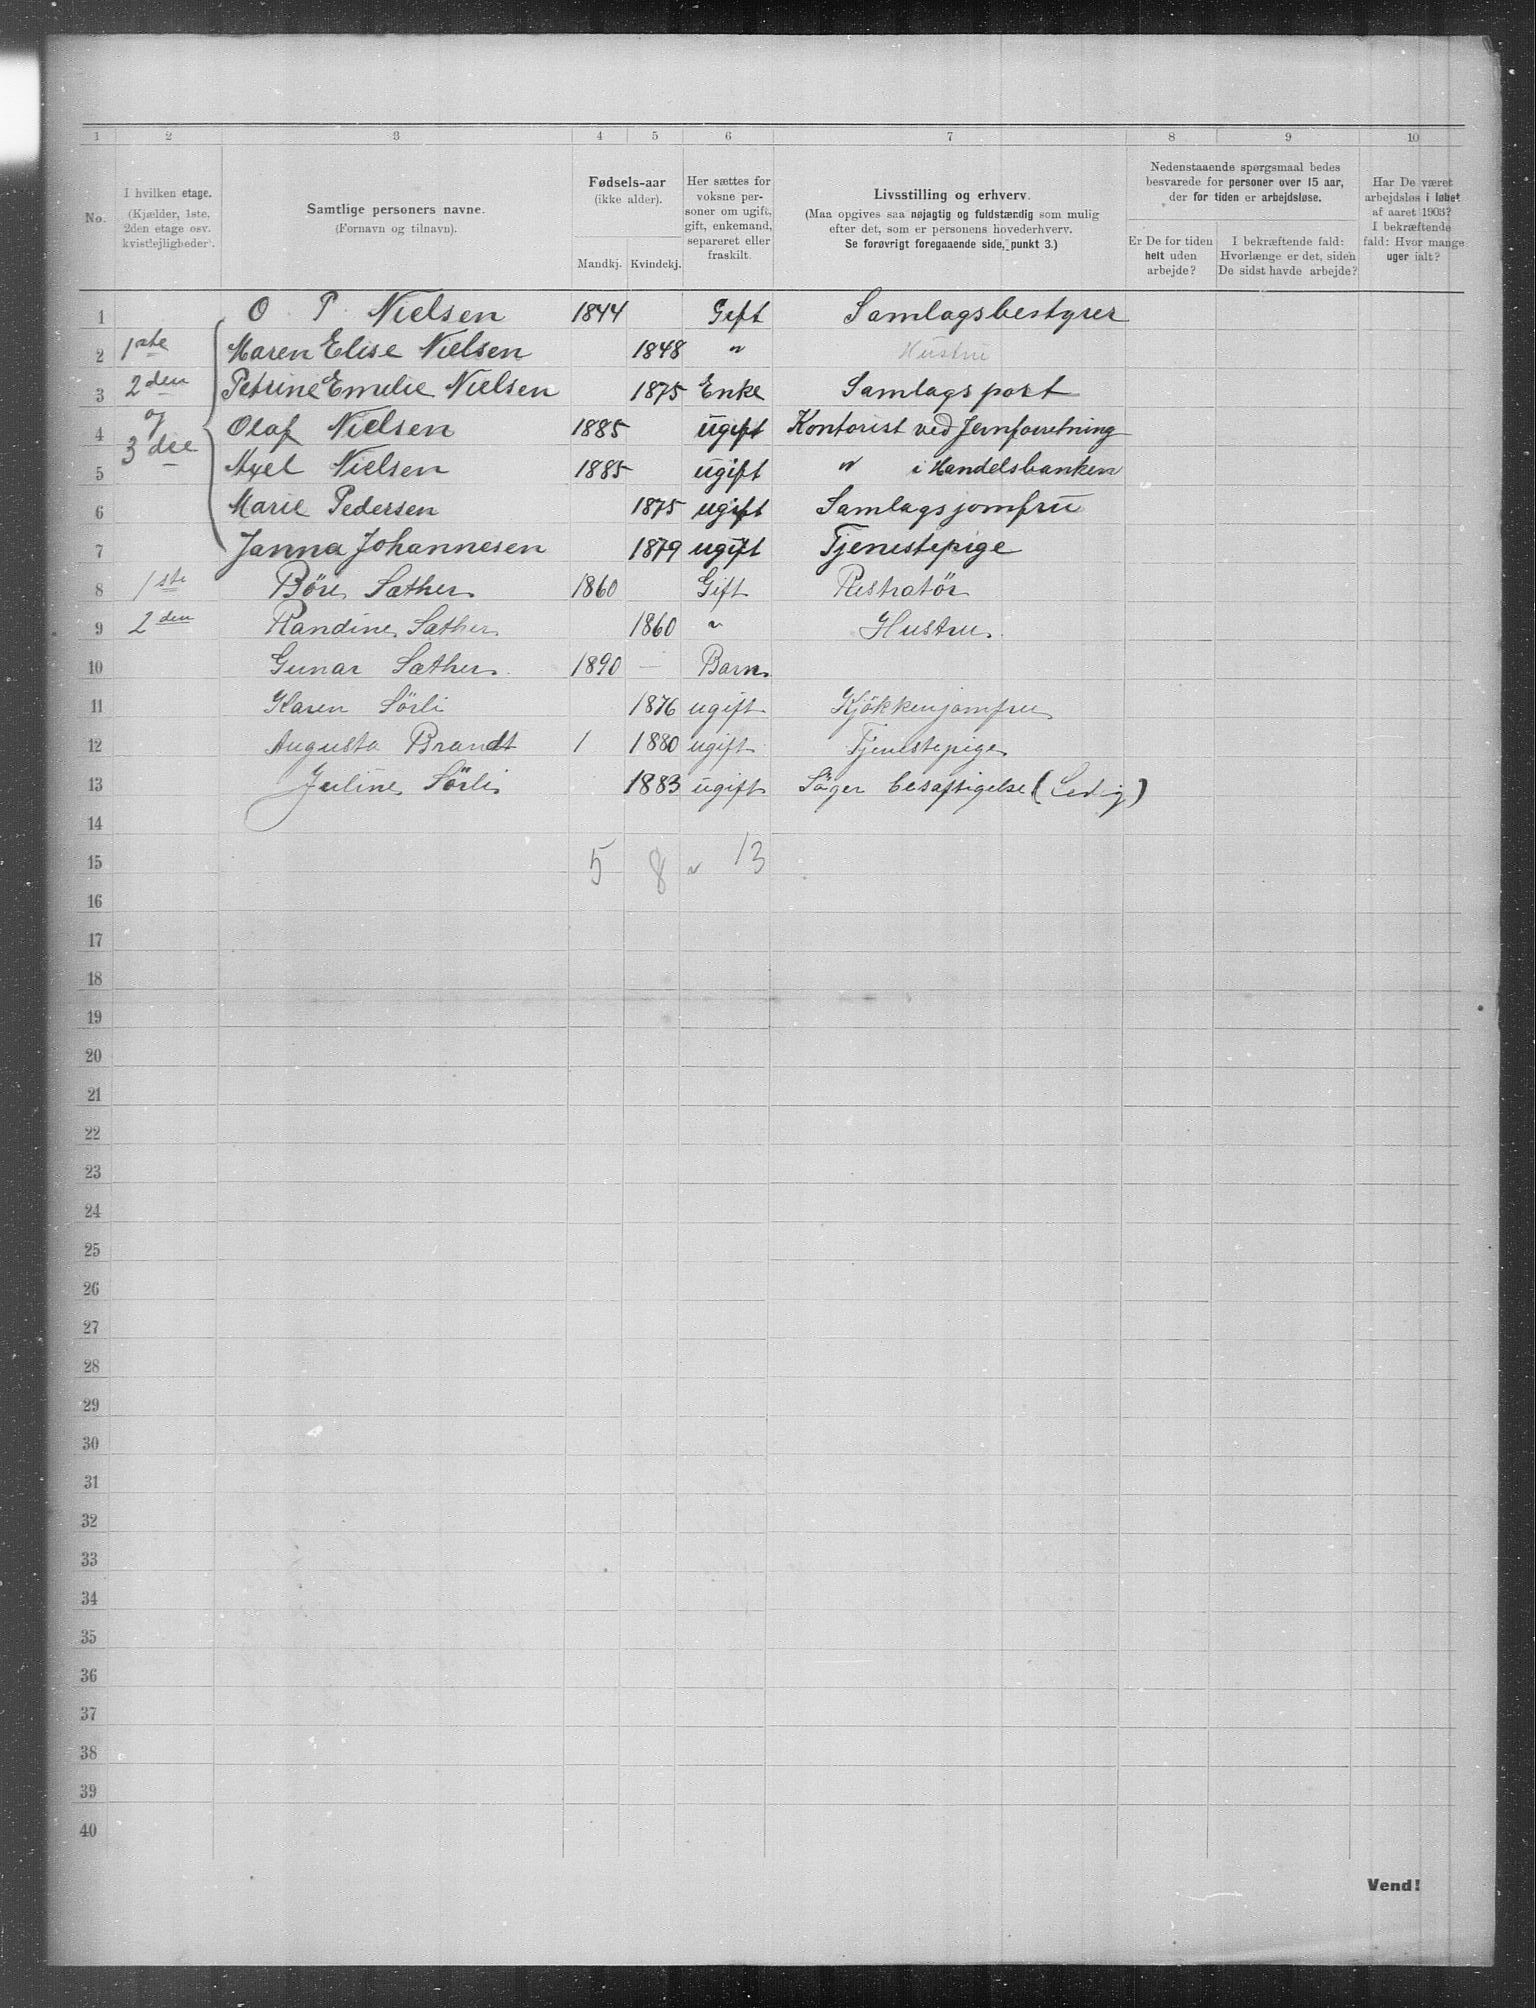 1 2 3 4 5 6 7 8 9 10
No.
I hvilken etage.
(Kjælder, 1ste,
2den etage osv.
kvistlejligheder).
Samtlige personers navne.
(Fornavn og tilnavn).
Fødsels-aar
(ikke alder).
Mandkj. Kvindekj.
Her sættes for
voksne per-
soner om ugift,
gift, enkemand,
separeret eller
fraskilt.
Livsstilling og erhverv.
(Maa opgives saa nøjagtig og fuldstændig som mulig
efter det, som er personens hovederhverv.
Se forøvrigt foregaaende side, punkt 3.)
Nedenstaaende spørgsmaal bedes
besvarede for personer over 15 aar,
der for tiden er arbejdsløse.
Er De for tiden
helt uden
arbejde?
I bekræftende fald:
Hvorlænge er det, siden
De sidst havde arbejde?
Har De været
arbejdsløs i løbet
af aaret 1903?
I bekræftende
fald: Hvor mange
uger ialt?
1 O. P. Nielsen 1844 Gift Samlagsbestyrer
2 1ste Maren Elise Nielsen 1848 " Hustru
3 2den Petrine Emilie Nielsen 1875 Enke Samlagspost
4 og Olaf Nielsen 1885 ugift Kontorist ved Jernforretning
5 3die Axel Nielsen 1885 ugift " i Handelsbanken
6 Marie Pedersen 1875 ugift Samlagsjomfru
7 Janna Johannesen 1879 ugift Tjenestepige
8 1ste Böre Sæther 1860 Gift Restratör
9 2den Randine Sæther 1860 " Hustru
10 Gunar Sæther 1890 — Barn
11 Karen Sörli 1876 ugift Kjökkenjomfru
12 Augusta Brandt 1 1880 ugift Tjenestepige
13 Juline Sörli 1883 ugift Söger besaftigelse (Ledig)
14
15 5 8 " 13
16
17
18
19
20
21
22
23
24
25
26
27
28
29
30
31
32
33
34
35
36
37
38
39
40
Vend!